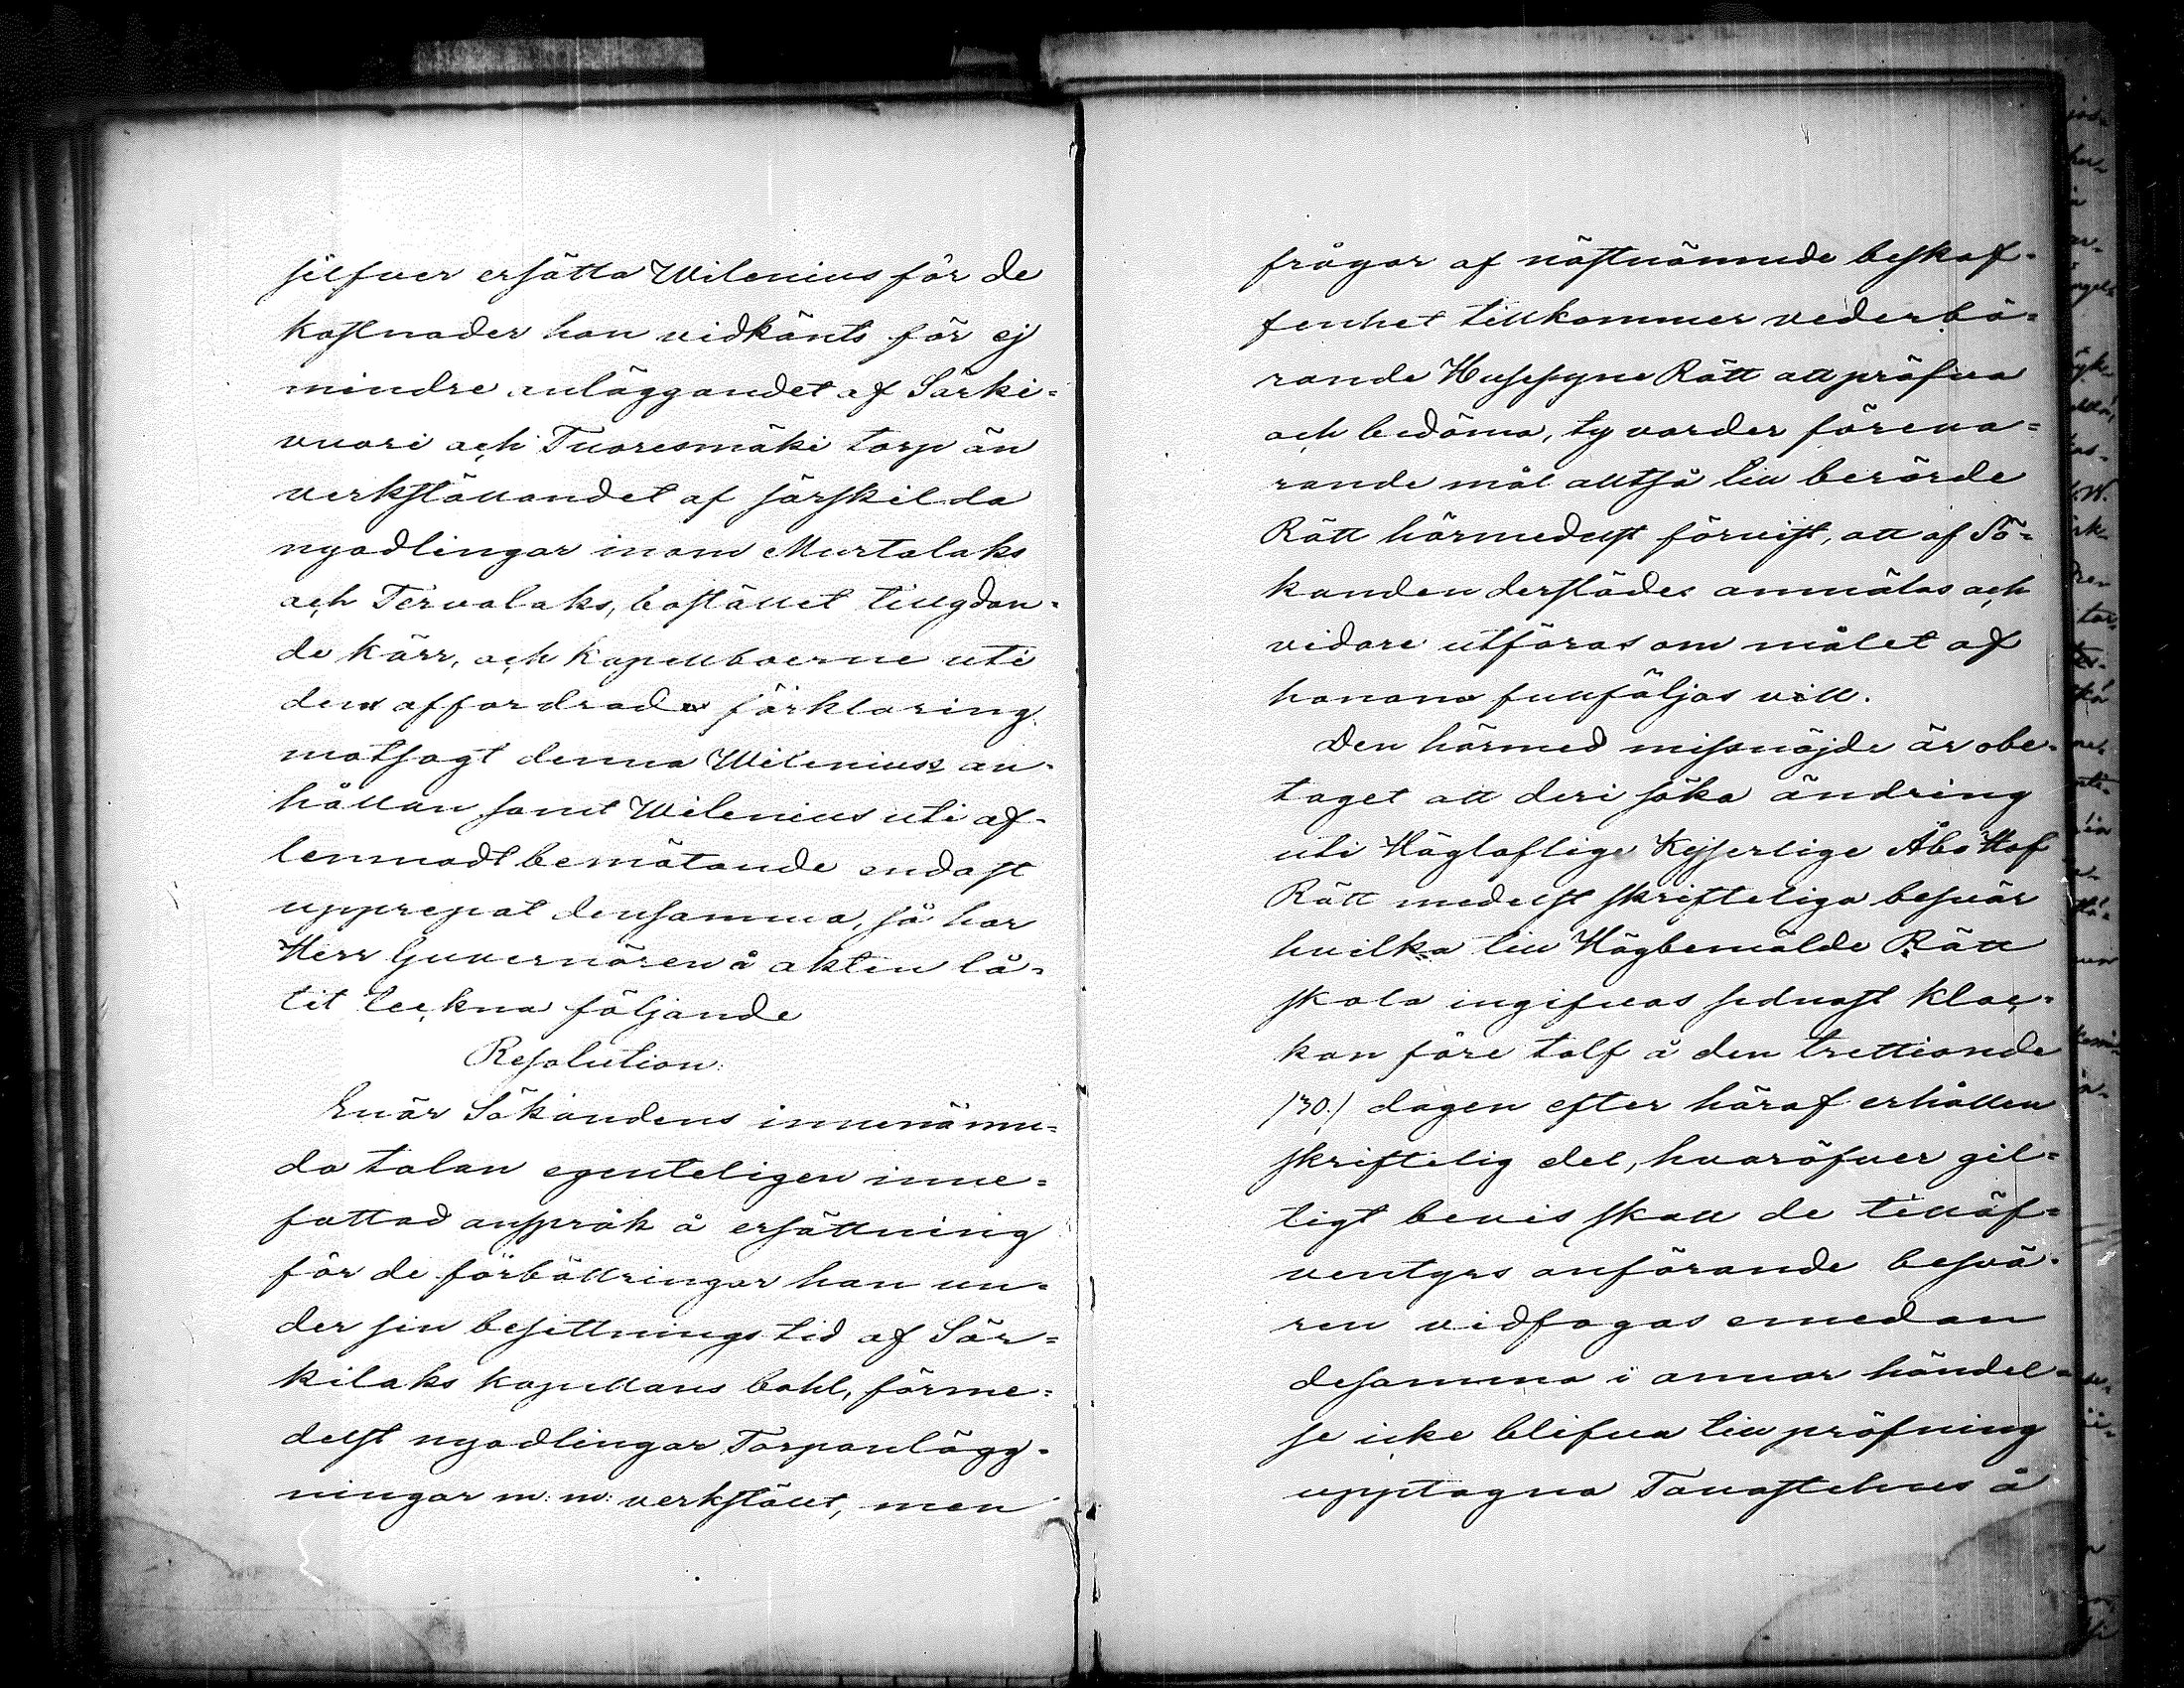 silfver ersätta Wilenius för de
kostnader han vidkänts för ej
mindre anläggandet af Särki-
vuori och Tuoresmäki torp än
verkställandet af särskilda
nyodlingar inom Murtolaks
och Tervalaks, bostället tillydan-
de kärr, och Kapellboerne uti
den affordrade förklaring
motsagt denna Wilenius's an-
hållan samt Wilenius uti af-
lemnadt bemötande endast
upprepat densamma, så har
Herr Guvernören å akten lå-
tit teckna följande
Resolution:
Enär Sökandens innenämn-
da talan egenteligen inne-
fattad anspråk å ersättning
för de förbättringar han un-
der sin besittnings tid af Sär-
kilaks kapellans bohl, förme-
delst nyodlingar Torpanlägg-
ningar m: m: verkstält, men
frågor af nästnämnde beskaf-
fenhet tillkommer vederbö-
rande Husesyne Rätt att pröfva
och bedöma, ty varder föreva-
rande mål alltså till berörde
Rätt härmedelst förvist, att af Sö-
kanden derstädes anmälas och
vidare utföras om målet af
honom fullföljas vill.
Den härmed missnöjde är obe-
taget att deri söka ändring
uti Höglofliga Kejserlige Åbo Hof
Rätt medelst skrifteliga besvär
hvilka till Högbemälde Rätt
skola ingifvas sednast kloc-
kan före tolf å den trettionde
/30./ dagen efter häraf erhållen
skriftelig del, hvaröfver gil-
tigt bevis skall de tilläf-
ventyrs anförande besvä-
ren vidfogas emedan
desamma i annor händel-
se icke blifva till pröfning
upptagna Tavastehus å